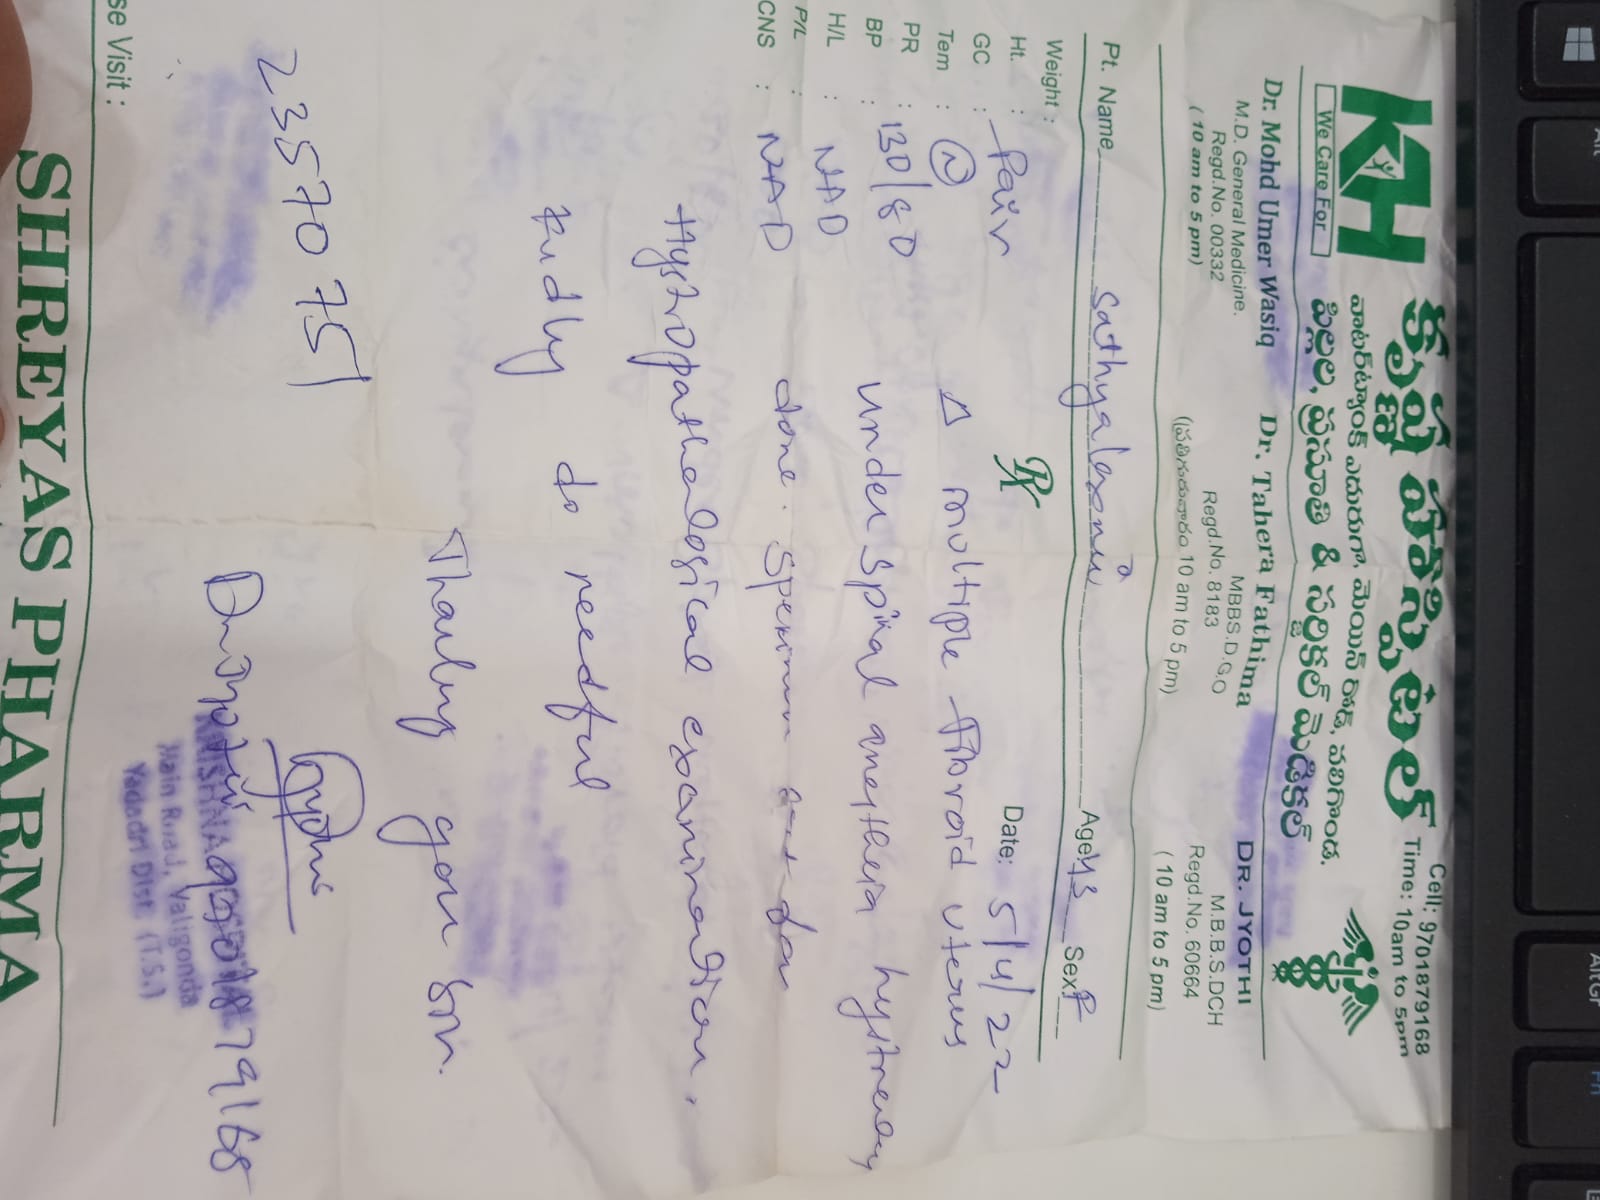 Cell: 9701879168
Time: 10am to 5pm
KH
We Care For
క్రిష్ణ హాస్పిటల్
వాటర్‌ట్యాంక్ ఎదురుగా, మెయిన్ రోడ్, వలిగొండ.
పిల్లల, ప్రసూతి & సర్జికల్ మెడికల్
Dr. Mohd Umer Wasiq
M.D. General Medicine.
Regd.No. 00332
( 10 am to 5 pm)
Dr. Tahera Fathima
MBBS.D.G.O
Regd.No. 8183
(ప్రతి గురువారం 10 am to 5 pm)
DR. JYOTHI
M.B.B.S.DCH
Regd.No. 60664
( 10 am to 5 pm)
Pt. Name Sathyalaxmi Age 43 Sex F
Weight :
Ht. : Date: 5/4/22
GC : Fair
Tem : N
PR :
BP : 130/80
H/L : NAD
P/L :
CNS : NAD
Rx
Δ multiple fibroid uterus
under spinal anesthesia hystrectomy
done. Specimen
Hystropathological examination.
Kindly do needful
Thanking you sir.
23570751
Dr. Jyothi 9701879168
KRISHNA
Main Road, Valigonda
Yadadri Dist. (T.S.)
se Visit :
SHREYAS PHARMA
Alt
AltGr
Fn